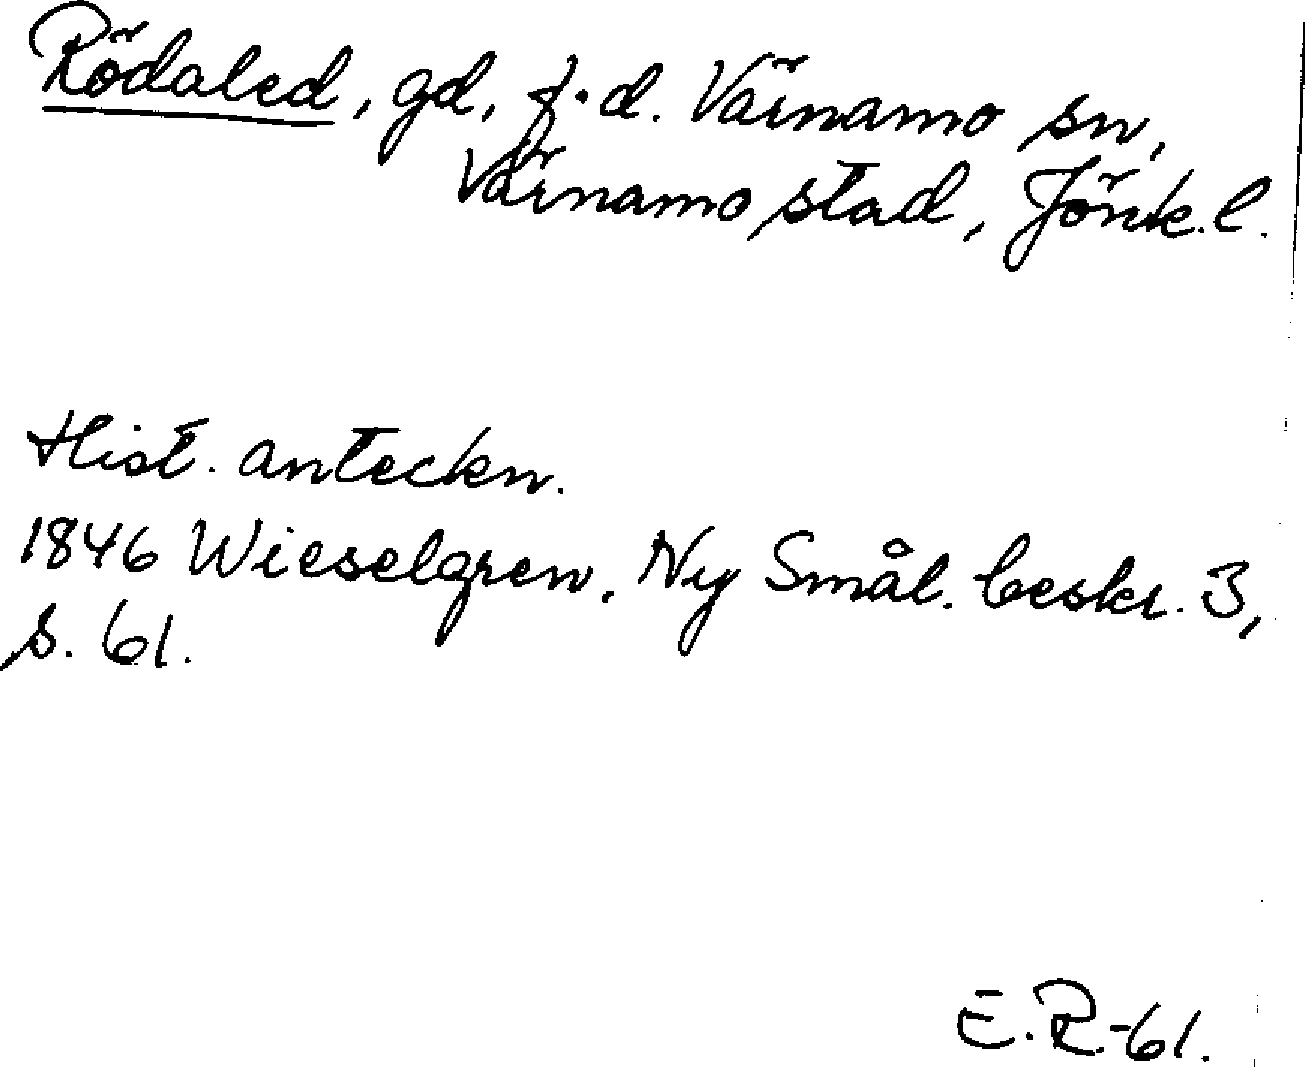 Rödaled, gd, f.d. Värnamo sn,
Värnamo stad, Jönk.l.
Hist. anteckn.
1846 Wieselgren, Ny Smål. beskr. 3,
s. 61.
E.R.-61.